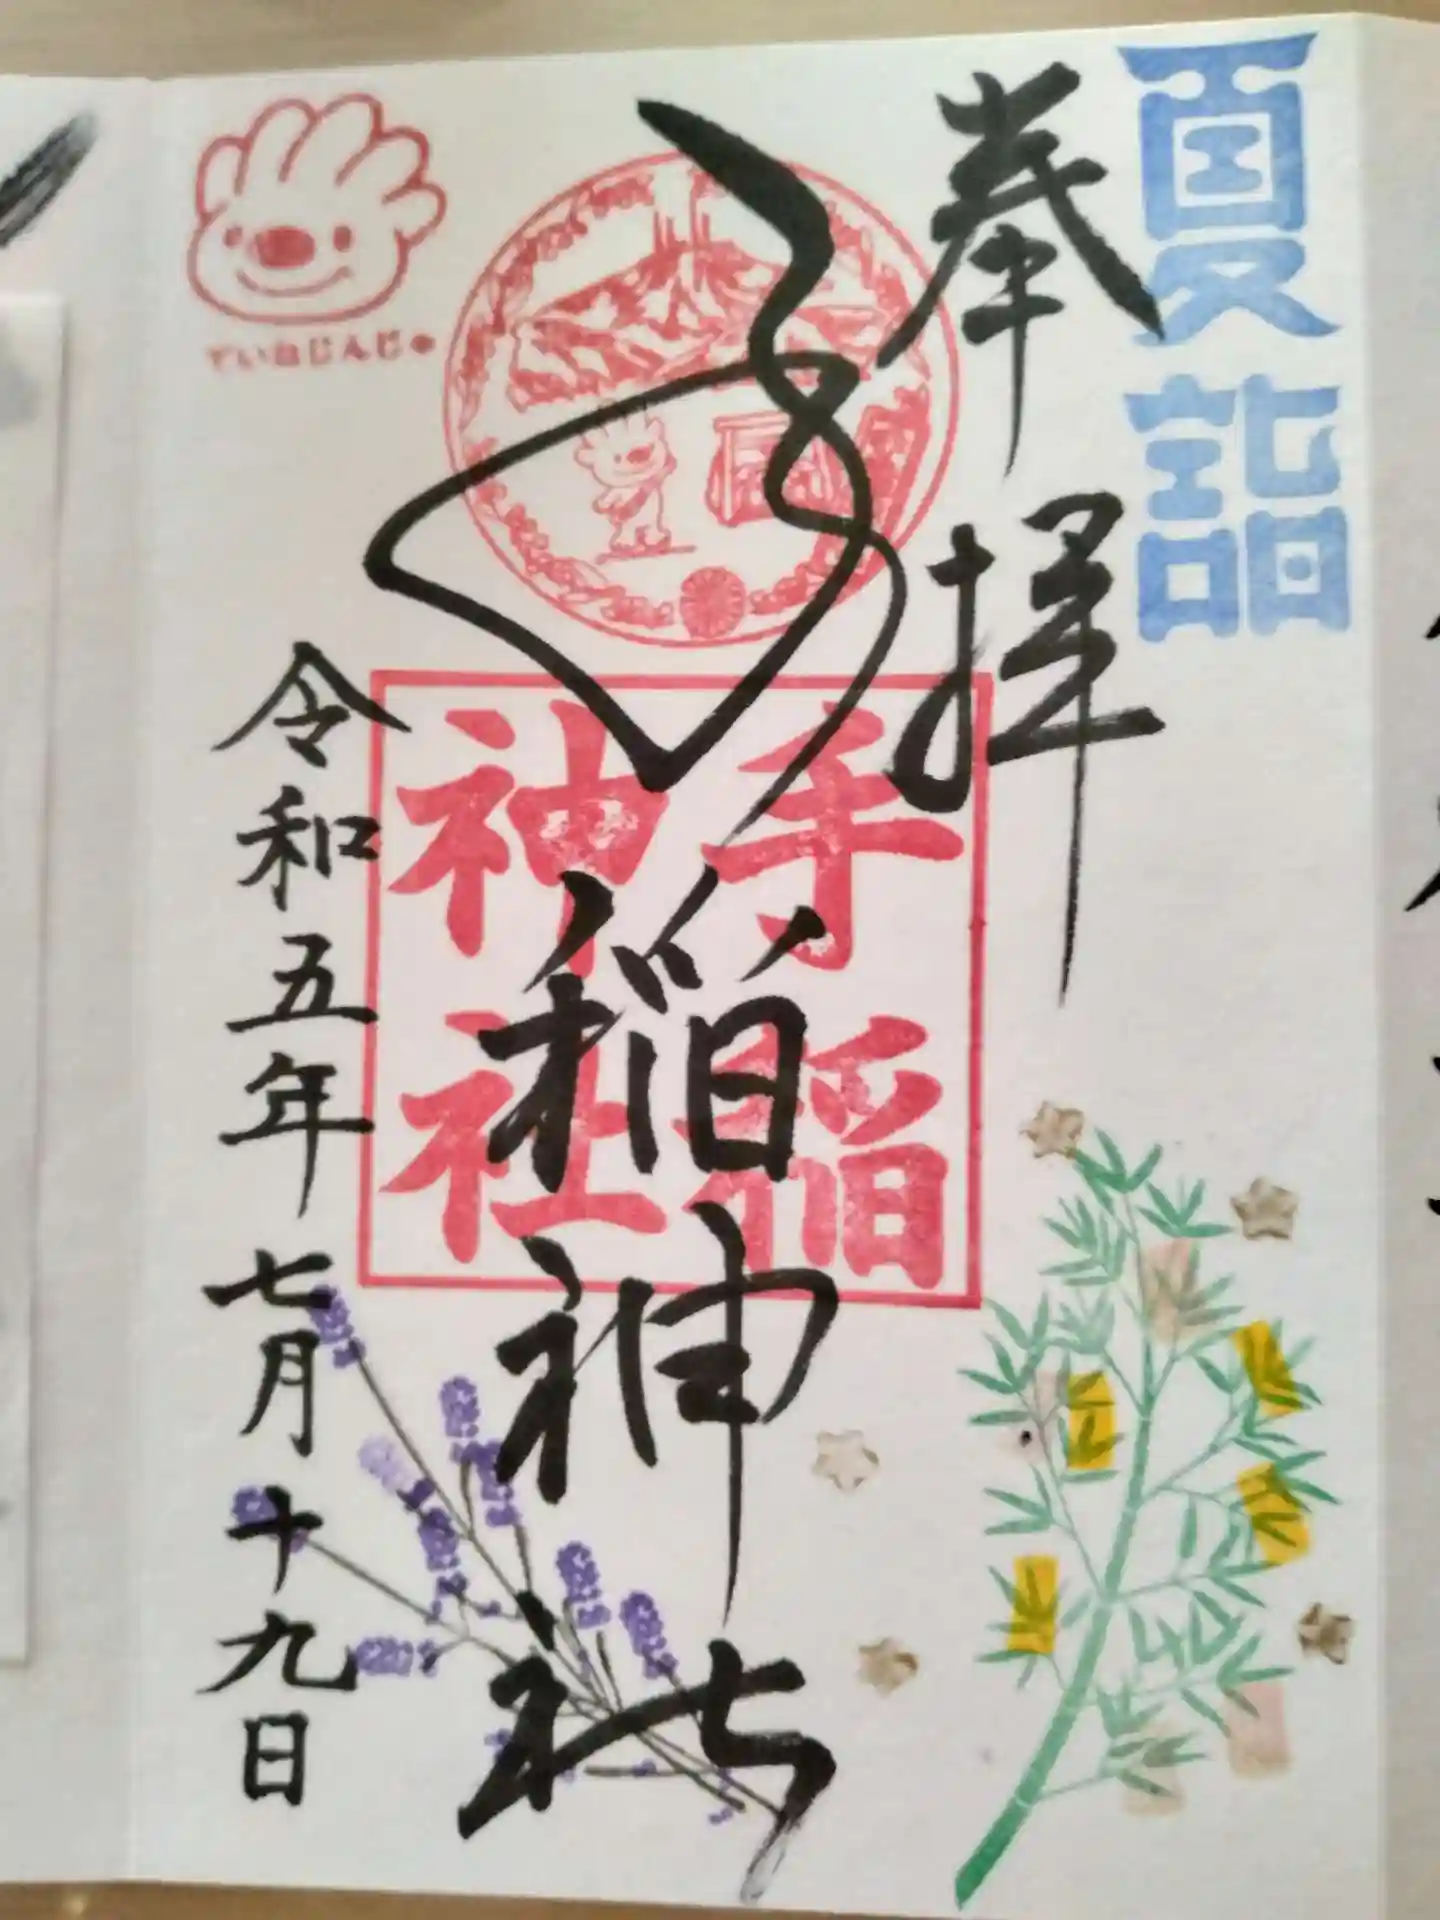 夏詣
奉拝
手稲神社
手稲
神社
ていねじんじゃ
令和五年七月十九日